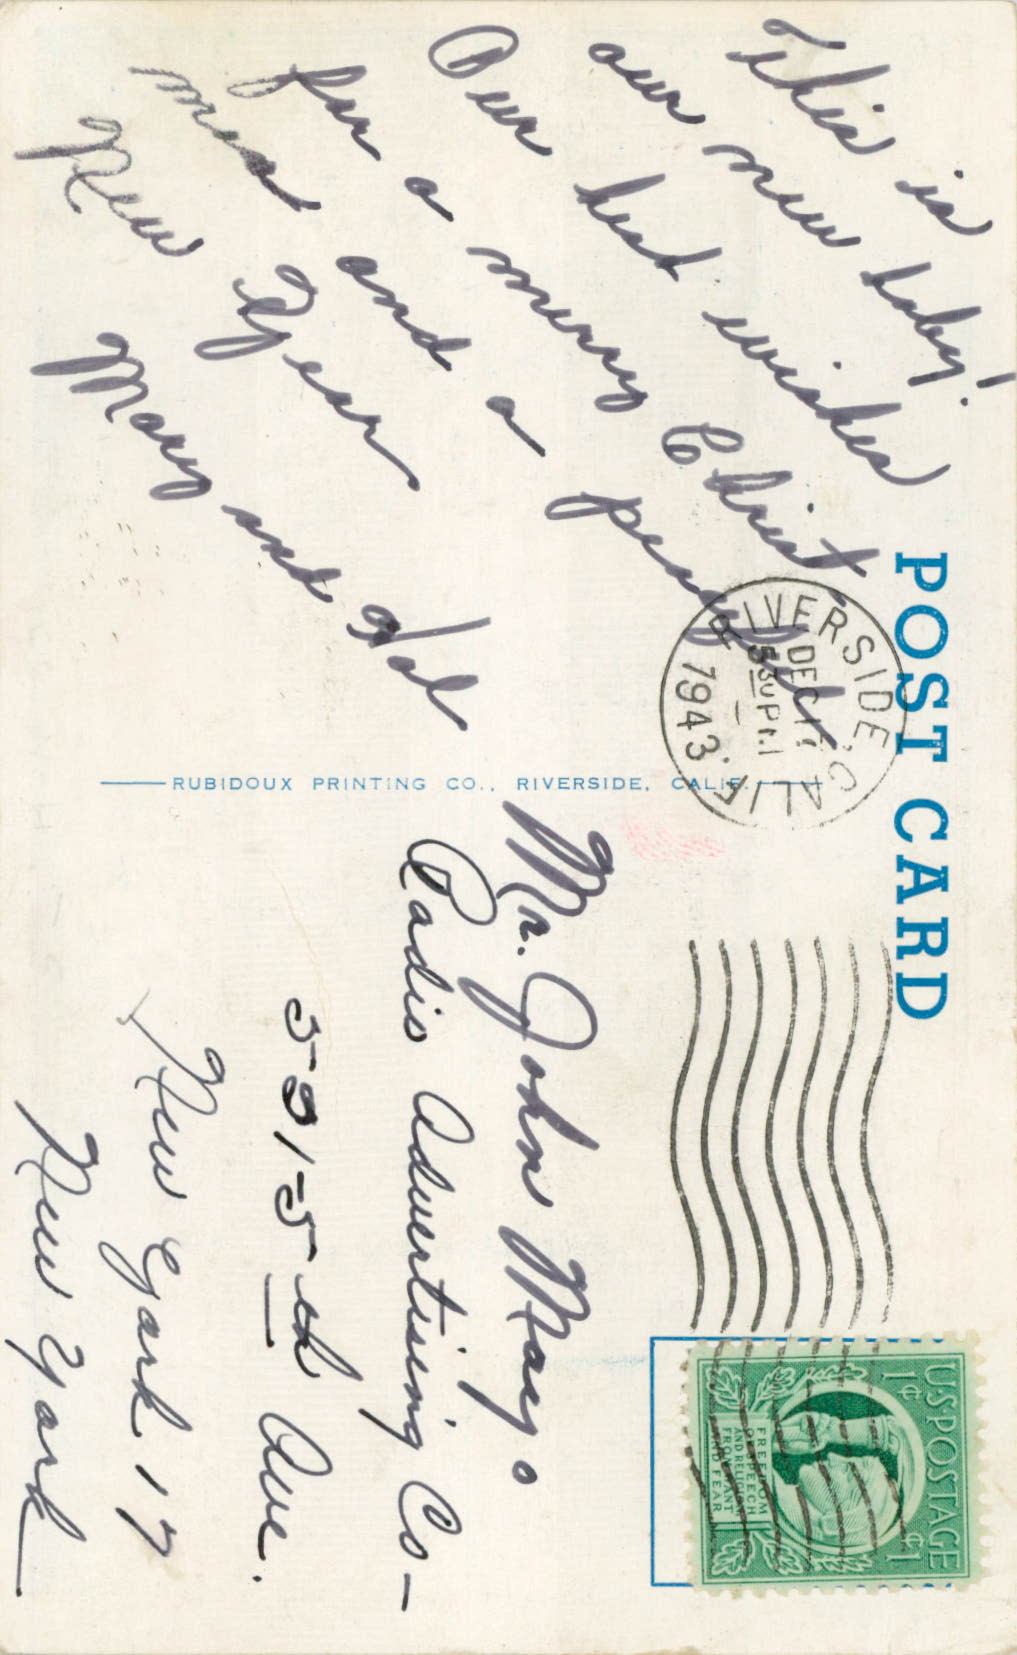 POST CARD
This is
our new baby!
Our best wishes
for a merry Christ-
mas and a peaceful
New Year
Mary and Hal
RIVERSIDE, CALIF.
DEC 17
5 30 PM
1943
RUBIDOUX PRINTING CO., RIVERSIDE, CALIF.
U.S. POSTAGE
1¢ 1¢
FREEDOM
OF SPEECH
AND RELIGION
FROM WANT
AND FEAR
Mr. John Mayo
Radio Advertising Co-
551-5th Ave.
New York 17
New York